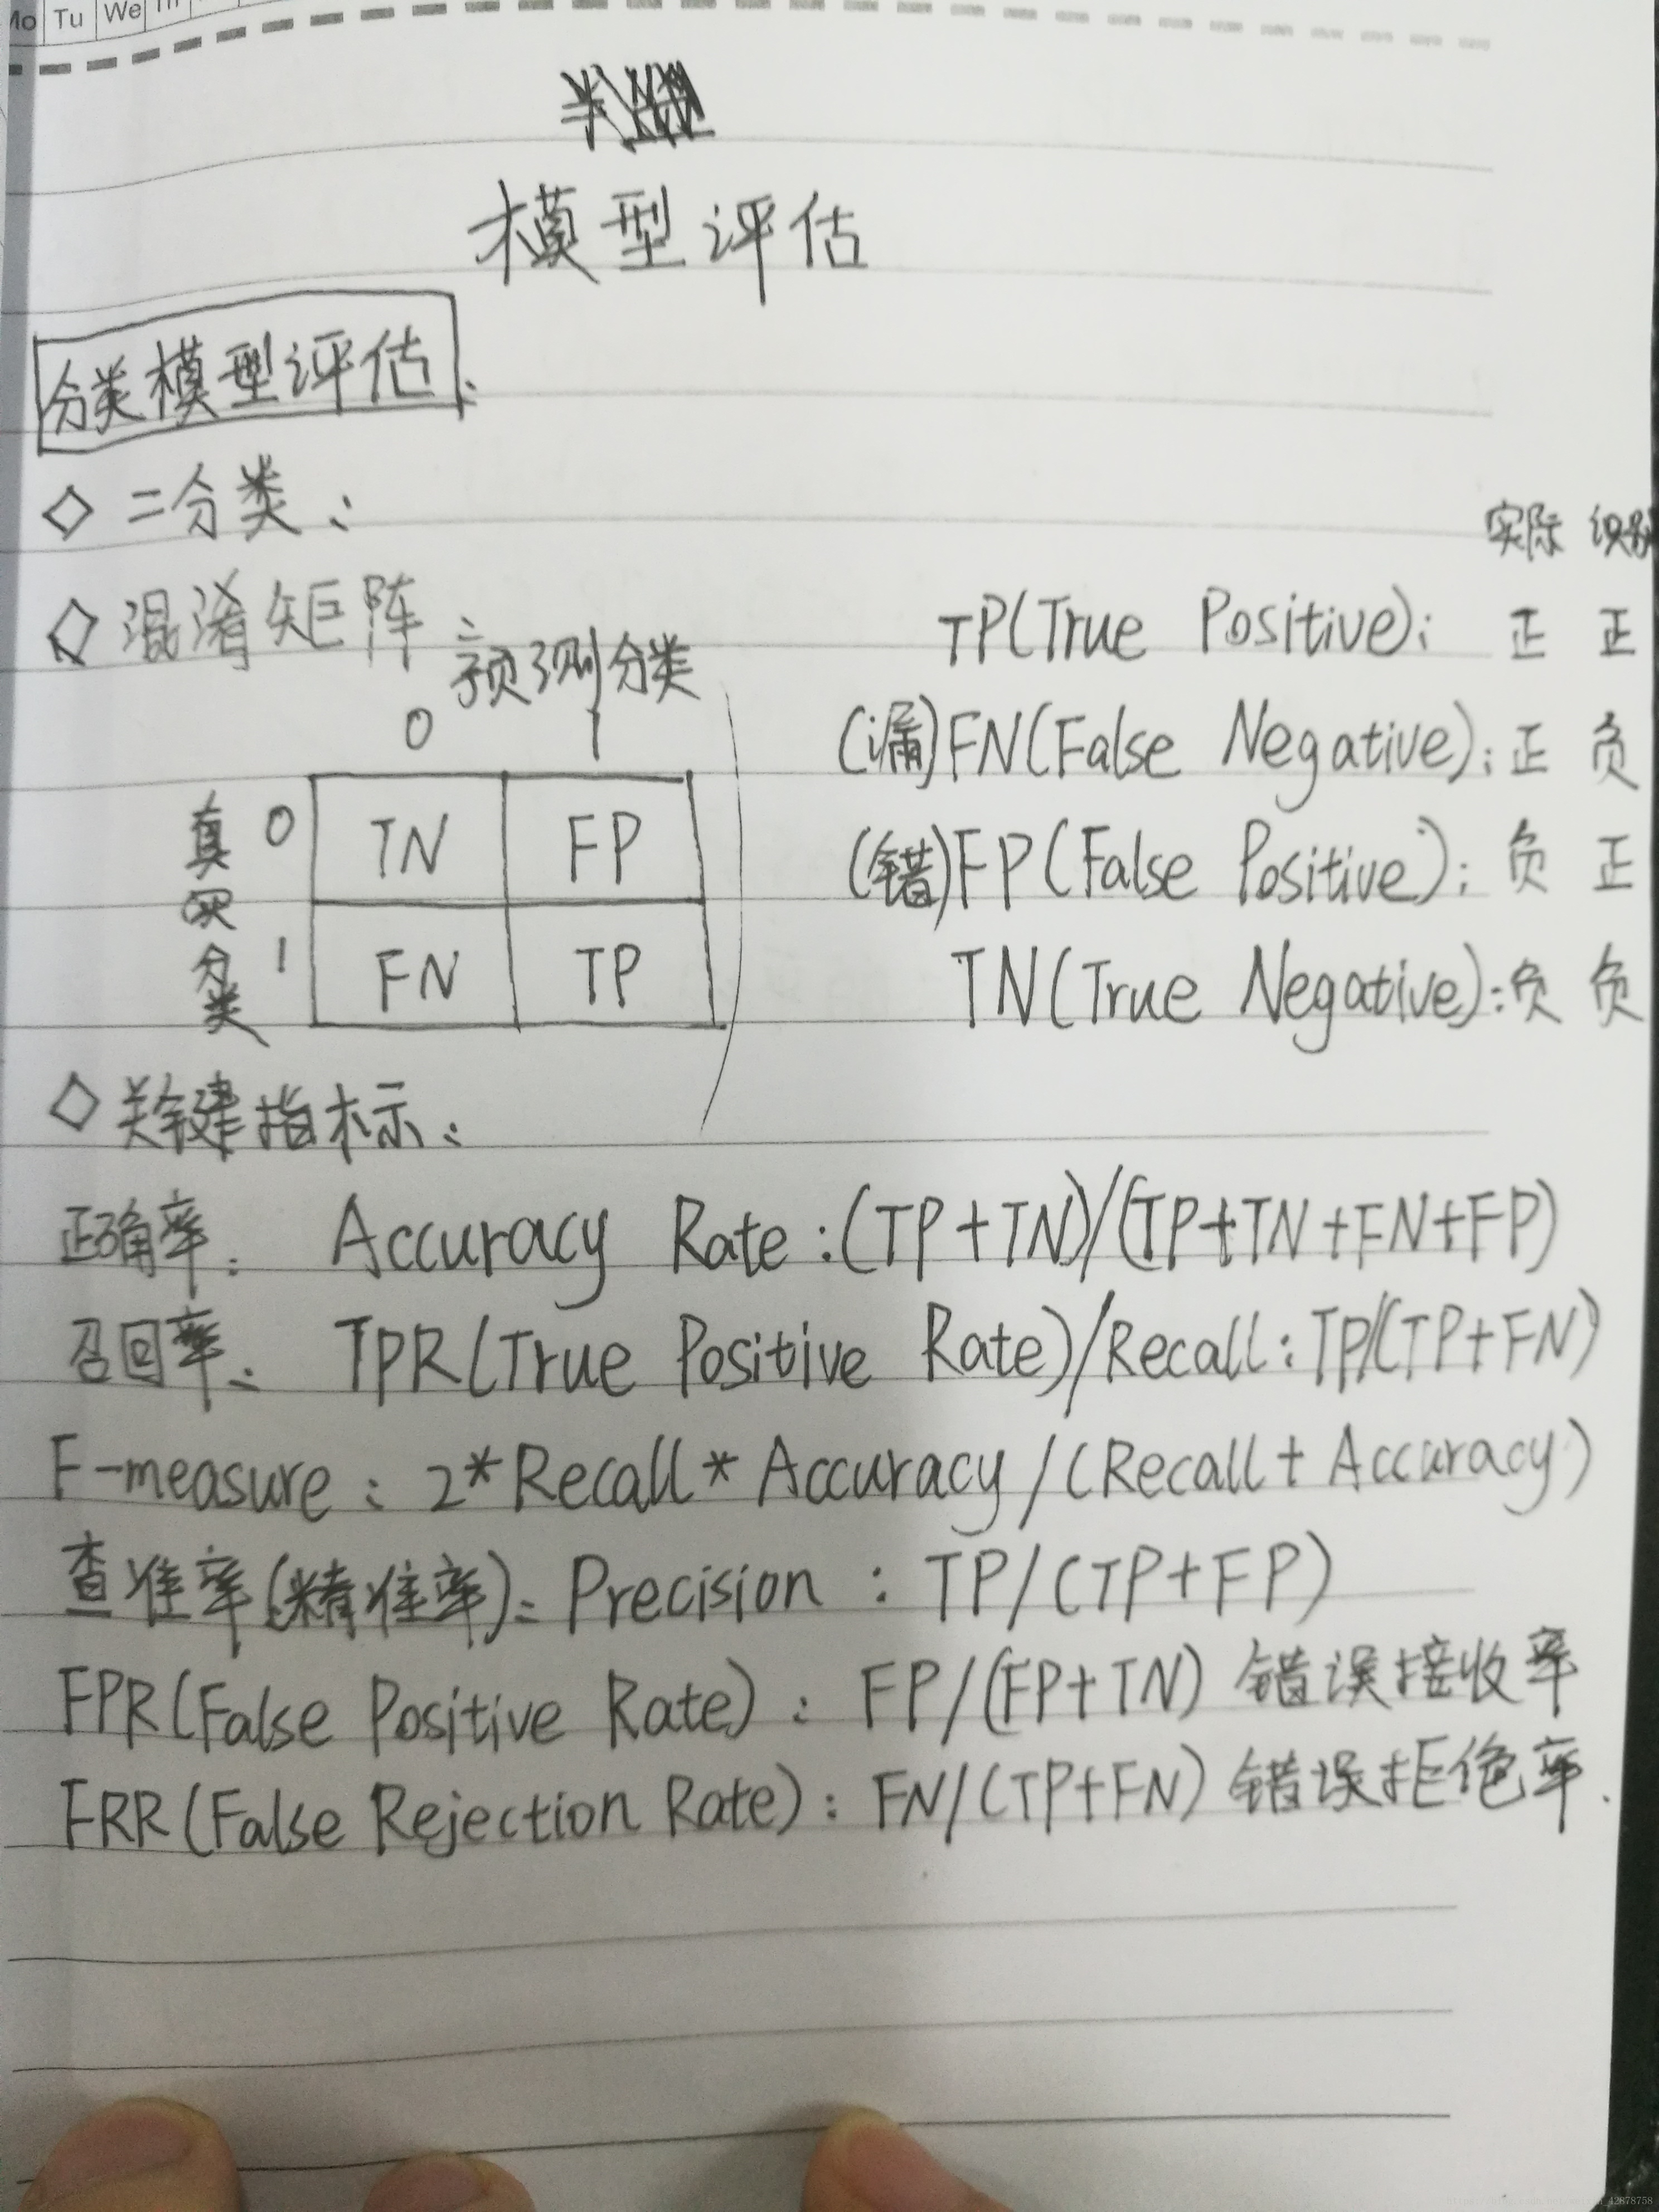 Mo Tu We
模型评估
分类模型评估:
◇ 二分类:
◇ 混淆矩阵:
预测分类
0 1
真实分类
0 TN FP
1 FN TP
实际 识别
TP(True Positive): 正 正
(漏)FN(False Negative): 正 负
(错)FP(False Positive): 负 正
TN(True Negative): 负 负
◇ 关键指标:
正确率: Accuracy Rate:(TP+TN)/(TP+TN+FN+FP)
召回率: TPR(True Positive Rate)/Recall:TP/(TP+FN)
F-measure: 2*Recall*Accuracy/(Recall+Accuracy)
查准率(精准率): Precision : TP/(TP+FP)
FPR(False Positive Rate): FP/(FP+TN) 错误接收率
FRR(False Rejection Rate): FN/(TP+FN) 错误拒绝率.
42878758